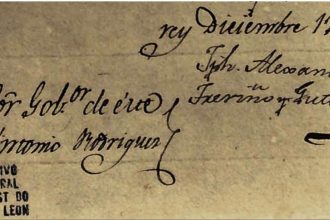 rey Diciembre 1
Jph. Alexan
Treviño y Gut
ōr Gob.or de este
Antonio Rodriguez
IVO
RAL
ST DO
LEON